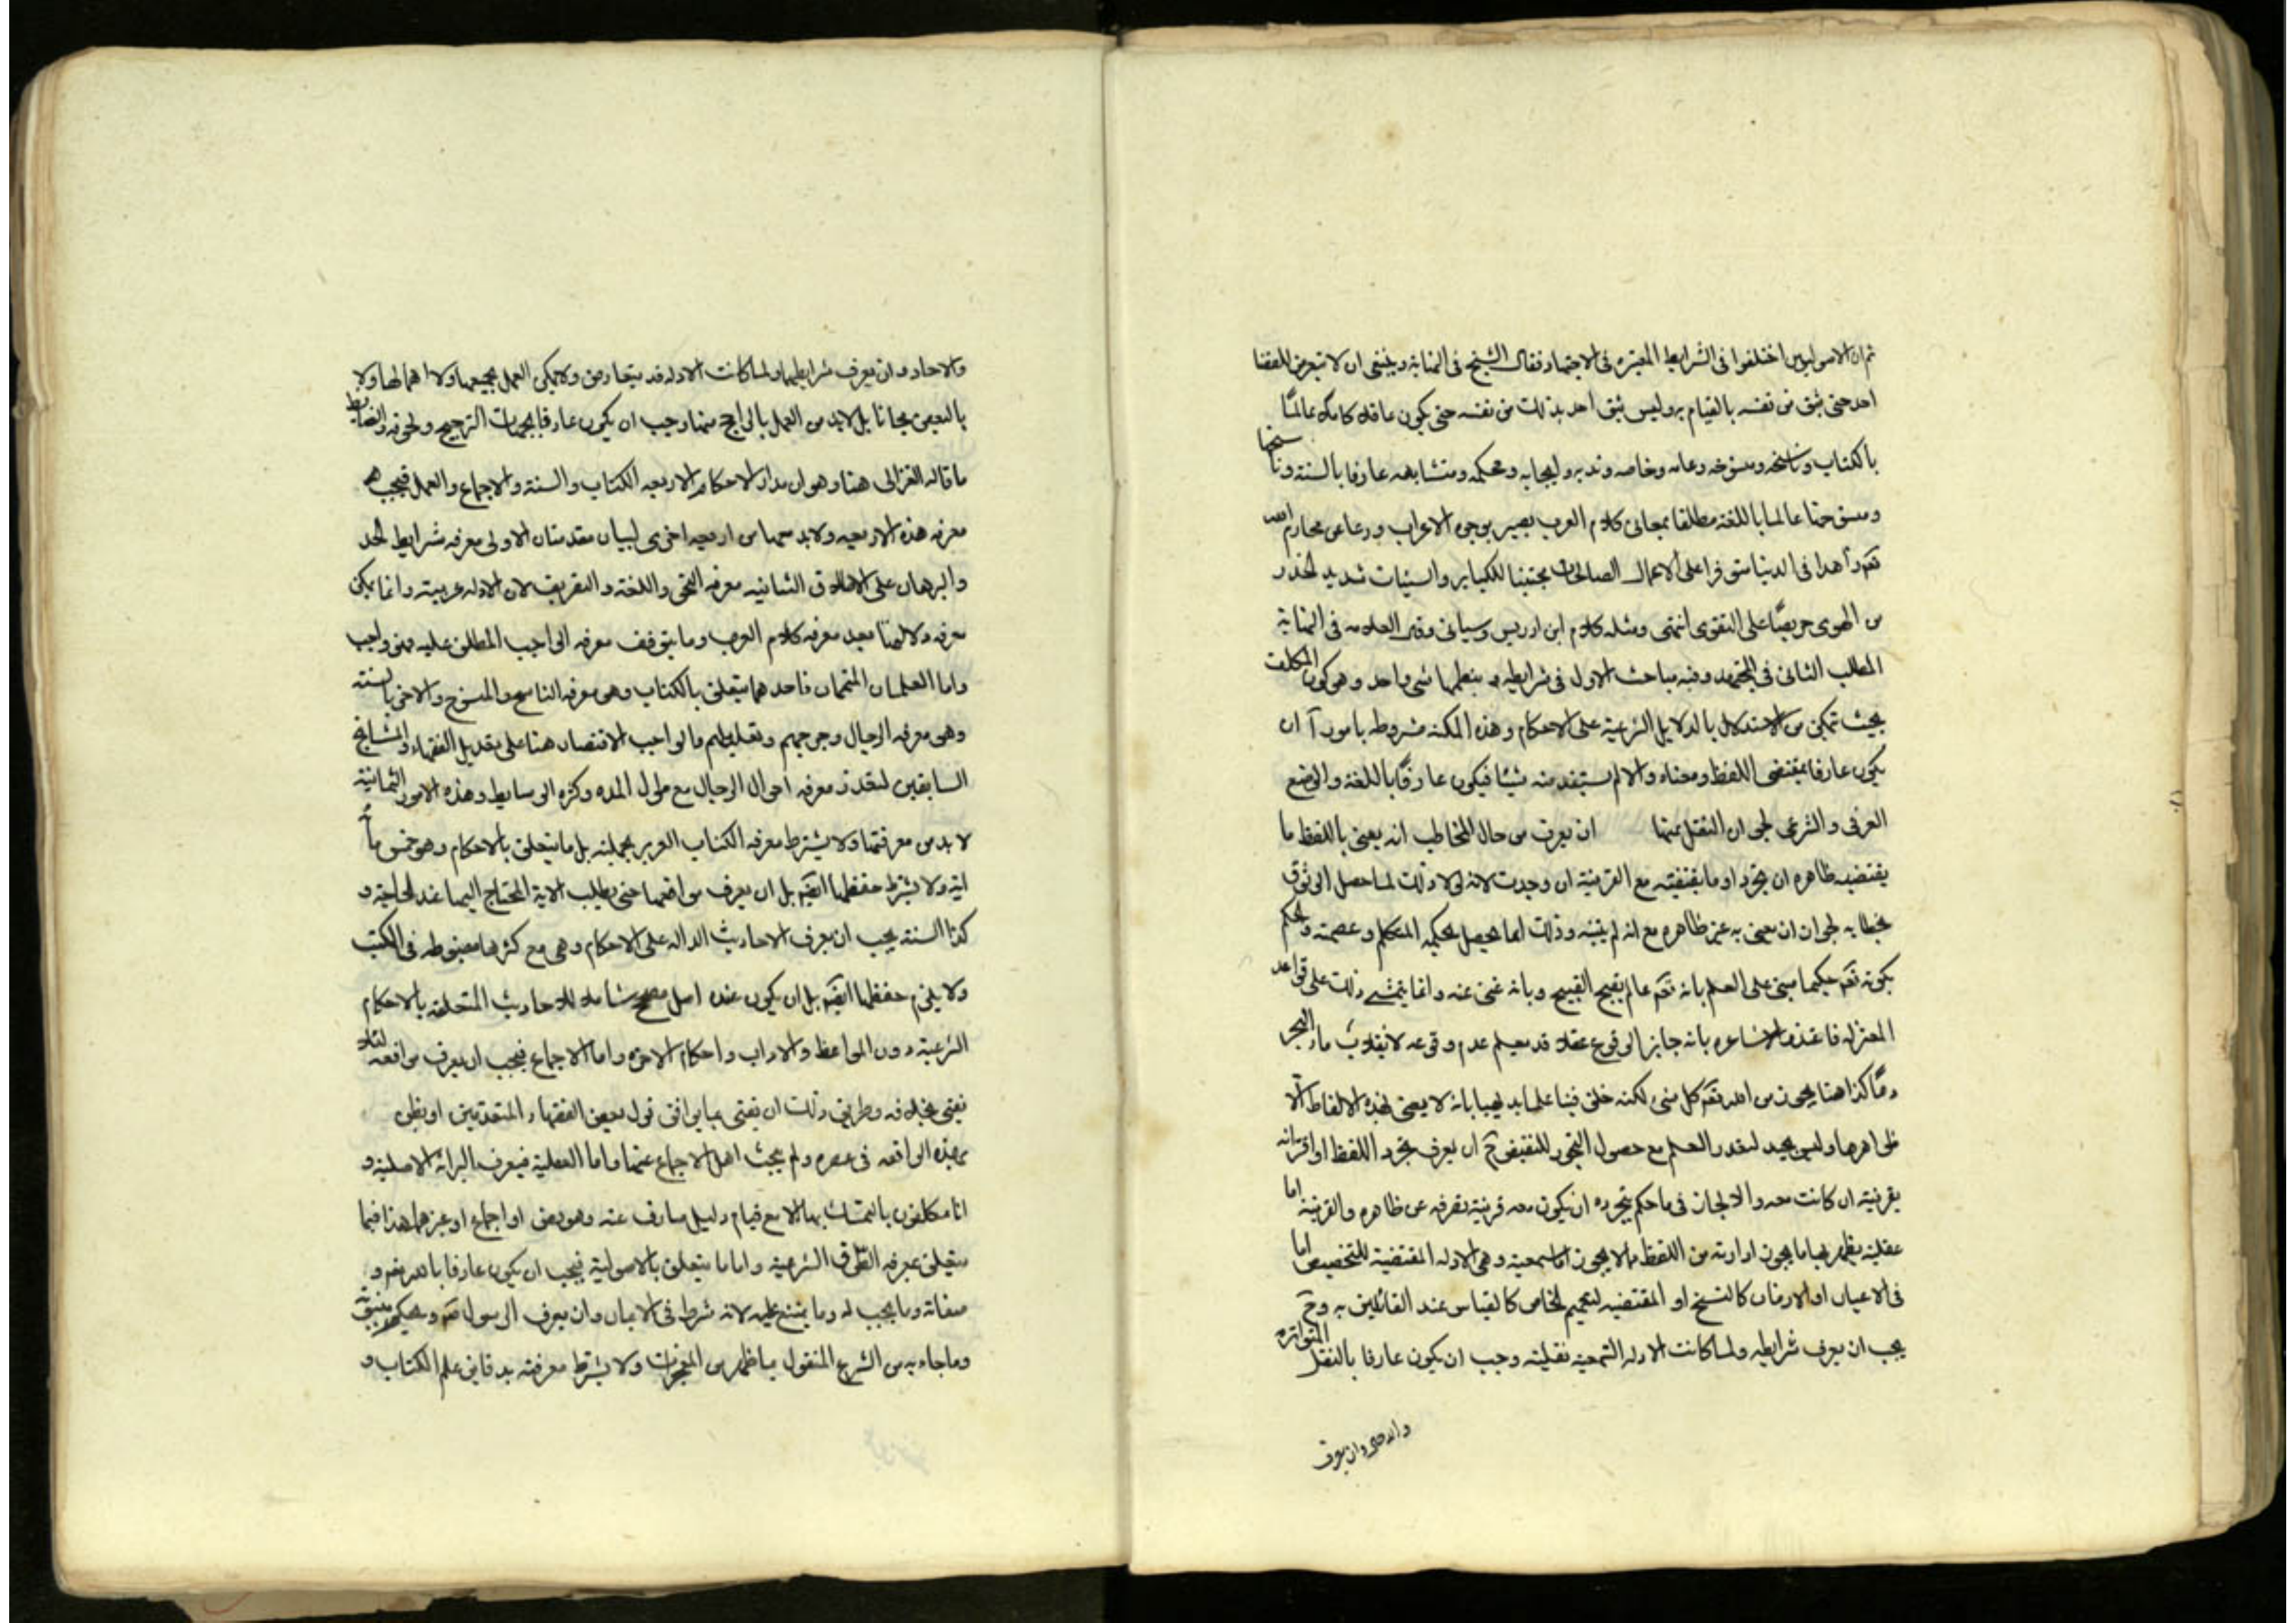 ثم ان الاصوليين اختلفوا فى الشرايط المعتبره فى الاجتهاد فقال الشيخ فى النهاية وينبغى ان لا يتعرض للقضا
احد حتى يثق من نفسه بالقيام به وليس يثق احد بذلك من نفسه حتى يكون عاقلا كاملا عالما
بالكتاب وناسخه ومنسوخه وعامه وخاصه وندبه وايجابه ومحكمه ومتشابهه عارفا بالسنة وناسخها
ومنسوخها عالما باللغة مطلقا بمعانى كلام العرب بصير بوجوه الاعراب ورعا عن محارم الله
تعم زاهدا فى الدنيا متوفرا على الاعمال الصالحات مجتنبا للكباير والسيئات شديد الحذر
من الهوى حريصا على التقوى انتهى ومثله كلام ابن ادريس وسياتى وقال العلامه فى النهاية
المطلب الثانى فى المجتهد وفيه مباحث الاول فى شرايطه و ينظمها شى واحد وهو كون المكلف
بحيث تمكن من الاستدلال بالدلايل الشرعية على الاحكام وهذه المكنه مشروطه بامور آ ان
يكون عارفا بمقتضى اللفظ ومعناه والا لم يستفد منه شيئا فيكون عارفا باللغة والوضع
العرفى والشرعى لجواز النقل عنها ان يعرف من حال المخاطب انه يعنى باللفظ ما
يقتضيه ظاهره ان تجرد او ما يقتضيه مع القرينة ان وجدت لانه لولا ذلك لما حصل الوثوق
بخطابه لجواز ان يعنى به غير ظاهره مع انه لم يبينه وذلك انما يحصل بحكمه المتكلم وعصمته والحكم
بكونه تعم حكيما مبنى على العلم بانه تعم عالم بقبح القبيح وبانه غنى عنه وانما يتمشى ذلك على قواعد
المعتزله فاعتذر الاشاعره بانه جايز الوقوع عقلا قد يعلم عدم وقوعه لانقلاب ماء البحر
دما كذا هنا يجوز من الله تعم كل شى لكنه خلق فينا علما بديهيا بانه لا يعنى بهذه الالفاظ الا
ظواهرها وليس بجيد لتعذر العلم مع حصول التجويز للنقيض ج ان يعرف تجرد اللفظ او اقترانه
بقرينة ان كانت معه والا لجاز فى ما حكم بتجرده ان يكون معه قرينة تصرفه عن ظاهره والقرينة اما
عقلية يظهر بها ما يجوز ارادته من اللفظ مما لا يجوز اما سمعية وهى الادله المقتضية للتخصيص اما
فى الاعيان او الازمان كالنسخ او المقتضيه لتعميم الخاص كالقياس عند القائلين به وح
يجب ان يعرف شرايطه ولما كانت الادله السمعية نقلية وجب ان يكون عارفا بالنقل المتواتره
والاحاد وان يعرف
والاحاد وان يعرف شرايطها ولما كانت الادله قد يتعارض ولا يمكن العمل بجميعها ولا اهمالها ولا
بالبعض مجانا بل لابد من العمل بالراجح منها وجب ان يكون عارفا بجهات الترجيح ولحوقه والضابط
ما قاله الغزالى هنا وهو ان مدار الاحكام الاربعه الكتاب والسنة والاجماع والعمل فيجب
معرفه هذه الاربعه ولابد معها من اربعه اخرى لبيان مقدمتان الاولى معرفه شرايط الحد
والبرهان على الاطلاق الثانيه معرفه النحو واللغة والتصريف لان الادله عربية وانما يمكن
معرفه دلالتها بعد معرفه كلام العرب وما يتوقف معرفه الواجب المطلق عليه فهو واجب
واما العلمان المتممان فاحدهما يتعلق بالكتاب وهو معرفه الناسخ والمنسوخ والاخر بالسنة
وهى معرفه الرجال وجرحهم وتعديلهم والواجب الاقتصار هنا على تعديل الفقهاء والمشايخ
السابقين لتعذر معرفه احوال الرجال مع طول المده وكثره الوسايط وهذه الامور الثمانية
لابد من معرفتها ولا يشترط معرفه الكتاب العزيز بجملته بل ما يتعلق بالاحكام وهو خمس مأة
اية ولا يشترط حفظها ايضم بل ان يعرف مواضعها حتى يطلب الاية المحتاج اليها عند الحاجة و
كذا السنة يجب ان يعرف الاحاديث الداله على الاحكام وهى مع كثرها مضبوطه فى الكتب
ولا يلزم حفظها ايضم بل ان يكون عنده اصل مصحح شامل للاحاديث المتعلقه بالاحكام
الشرعية دون المواعظ والاداب واحكام الاخره واما الاجماع فيجب ان يعرف مواقعه لئلا
يفتى بخلافه وطريق ذلك ان يفتى بما يوافق قول بعض الفقهاء المتقدمين او يظن
بهذه الواقعه فى عصره ولم يبحث اهل الاجماع عنها واما العقلية فيعرف البرائة الاصلية و
انا مكلفون بالتمسك بها الا مع قيام دليل صارف عنه وهو نص او اجماع او غيرهما هذا فيما
يتعلق بمعرفه الطرق الشرعية واما ما يتعلق بالاصولية فيجب ان يكون عارفا بالله تعم و
صفاته وما يجب له وما يمتنع عليه لانه شرط فى الايمان وان يعرف الرسول ص ويحكم بنبوته
وما جاء به من الشرع المنقول بما ظهر من المعجزات ولا يشترط معرفته بدقايق علم الكتاب و